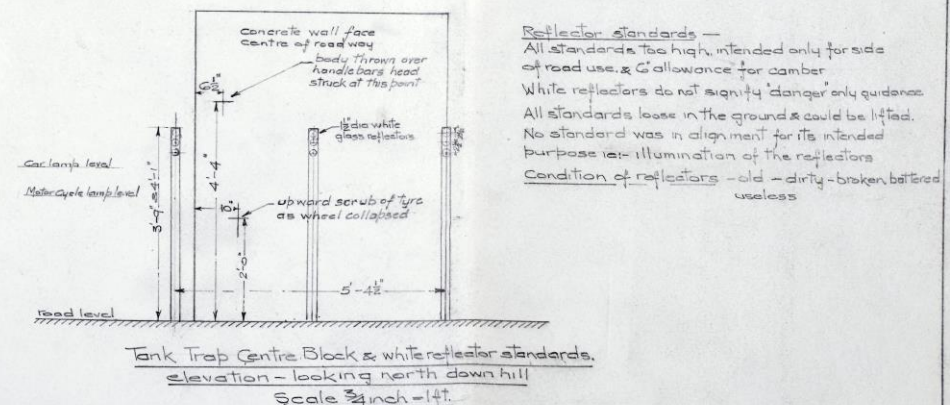 concrete wall face
centre of roadway
body thrown over
handle bars head
struck at this point
6½"
1½" dia white
glass reflectors
Car lamp level
Motor cycle lamp level
3'-9" & 4'-1"
4'-4"
upward scrub of tyre
as wheel collapsed
2'-0"
5'-4½"
road level
Tank Trap Centre Block & white reflector standards.
elevation - looking north down hill
Scale ¾ inch = 1ft.
Reflector standards —
All standards too high, intended only for side
of road use, & 6" allowance for camber
White reflectors do not signify "danger" only guidance
All standards loose in the ground & could be lifted.
No standard was in alignment for its intended
purpose ie:- illumination of the reflectors
Condition of reflectors - old - dirty - broken, battered
useless